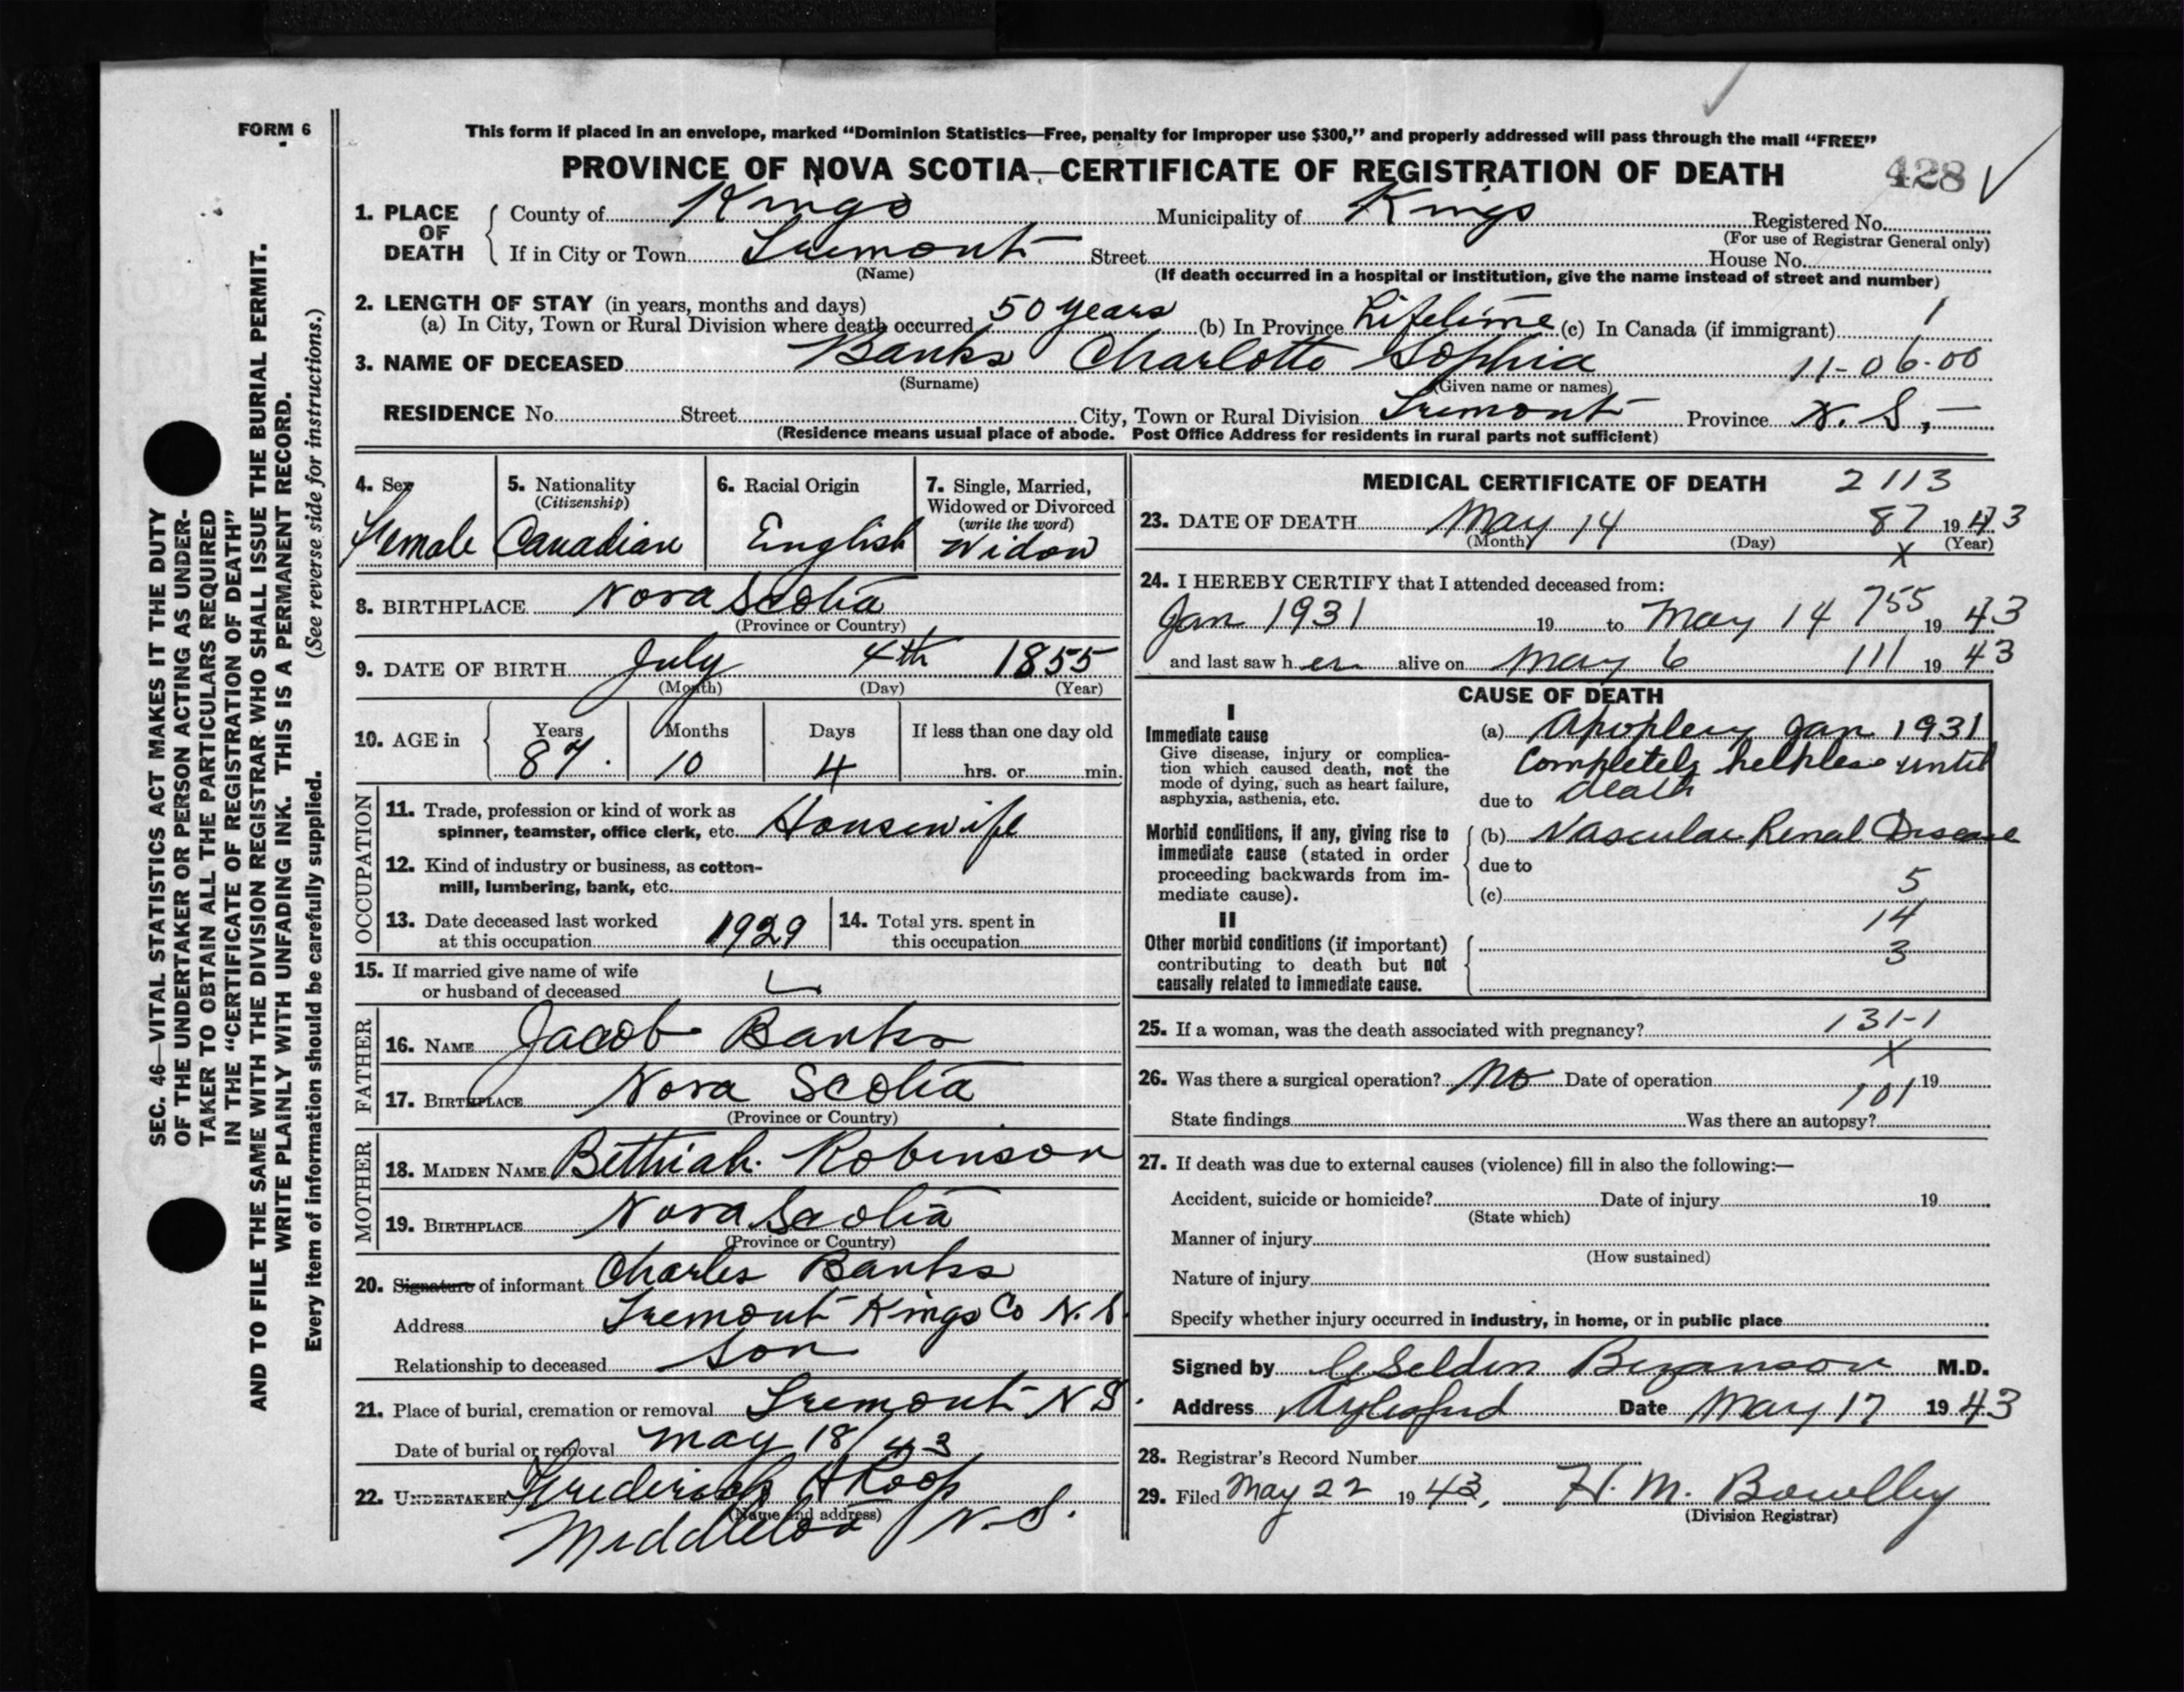 FORM 6
This form if placed in an envelope, marked "Dominion Statistics—Free, penalty for improper use $300," and properly addressed will pass through the mail "FREE"
PROVINCE OF NOVA SCOTIA—CERTIFICATE OF REGISTRATION OF DEATH 428
1. PLACE OF DEATH County of Kings Municipality of Kings Registered No.
(For use of Registrar General only)
If in City or Town Tremont Street House No.
(Name) (If death occurred in a hospital or institution, give the name instead of street and number)
2. LENGTH OF STAY (in years, months and days)
(a) In City, Town or Rural Division where death occurred 50 years (b) In Province Lifetime (c) In Canada (if immigrant) 1
3. NAME OF DECEASED Banks Charlotte Sophia 11-06-00
(Surname) (Given name or names)
RESIDENCE No. Street City, Town or Rural Division Tremont Province N.S,-
(Residence means usual place of abode. Post Office Address for residents in rural parts not sufficient)
SEC. 46—VITAL STATISTICS ACT MAKES IT THE DUTY
OF THE UNDERTAKER OR PERSON ACTING AS UNDER-
TAKER TO OBTAIN ALL THE PARTICULARS REQUIRED
IN THE "CERTIFICATE OF REGISTRATION OF DEATH"
AND TO FILE THE SAME WITH THE DIVISION REGISTRAR WHO SHALL ISSUE THE BURIAL PERMIT.
WRITE PLAINLY WITH UNFADING INK. THIS IS A PERMANENT RECORD.
Every item of information should be carefully supplied. (See reverse side for instructions.)
4. Sex 5. Nationality 6. Racial Origin 7. Single, Married,
(Citizenship) Widowed or Divorced
(write the word)
Female Canadian English Widow
8. BIRTHPLACE Nova Scotia
(Province or Country)
9. DATE OF BIRTH July 4th 1855
(Month) (Day) (Year)
10. AGE in Years Months Days If less than one day old
87. 10 4 hrs. or min.
OCCUPATION
11. Trade, profession or kind of work as
spinner, teamster, office clerk, etc. Housewife
12. Kind of industry or business, as cotton-
mill, lumbering, bank, etc.
13. Date deceased last worked 14. Total yrs. spent in
at this occupation 1929 this occupation
15. If married give name of wife
or husband of deceased
FATHER
16. NAME Jacob Banks
17. BIRTHPLACE Nova Scotia
(Province or Country)
MOTHER
18. MAIDEN NAME Bethiah. Robinson
19. BIRTHPLACE Nova Scotia
(Province or Country)
20. Signature of informant Charles Banks
Address Tremont Kings Co N.S.
Relationship to deceased Son
21. Place of burial, cremation or removal Tremont N S.
Date of burial or removal May 18/43
22. UNDERTAKER Frederick A Roop
(Name and address)
Middleton N.S.
MEDICAL CERTIFICATE OF DEATH 2113
23. DATE OF DEATH May 14 87 1943
(Month) (Day) (Year)
X
24. I HEREBY CERTIFY that I attended deceased from:
Jan 1931 19 to May 14 755 19 43
and last saw her alive on May 6 111 19 43
CAUSE OF DEATH
I
Immediate cause
Give disease, injury or complica-
tion which caused death, not the
mode of dying, such as heart failure,
asphyxia, asthenia, etc.
(a) Apoplexy Jan 1931
Completely helpless until
due to death
Morbid conditions, if any, giving rise to
immediate cause (stated in order
proceeding backwards from im-
mediate cause).
(b) Vascular Renal Disease
due to
(c) 5
14
II
Other morbid conditions (if important)
contributing to death but not
causally related to immediate cause.
3
25. If a woman, was the death associated with pregnancy? 131-1
X
26. Was there a surgical operation? No Date of operation 19
101
State findings Was there an autopsy?
27. If death was due to external causes (violence) fill in also the following:—
Accident, suicide or homicide? Date of injury 19
(State which)
Manner of injury
(How sustained)
Nature of injury
Specify whether injury occurred in industry, in home, or in public place
Signed by G Seldon Bezanson M.D.
Address Aylesford Date May 17 1943
28. Registrar's Record Number
29. Filed May 22 1943, H. M.
(Division Registrar)